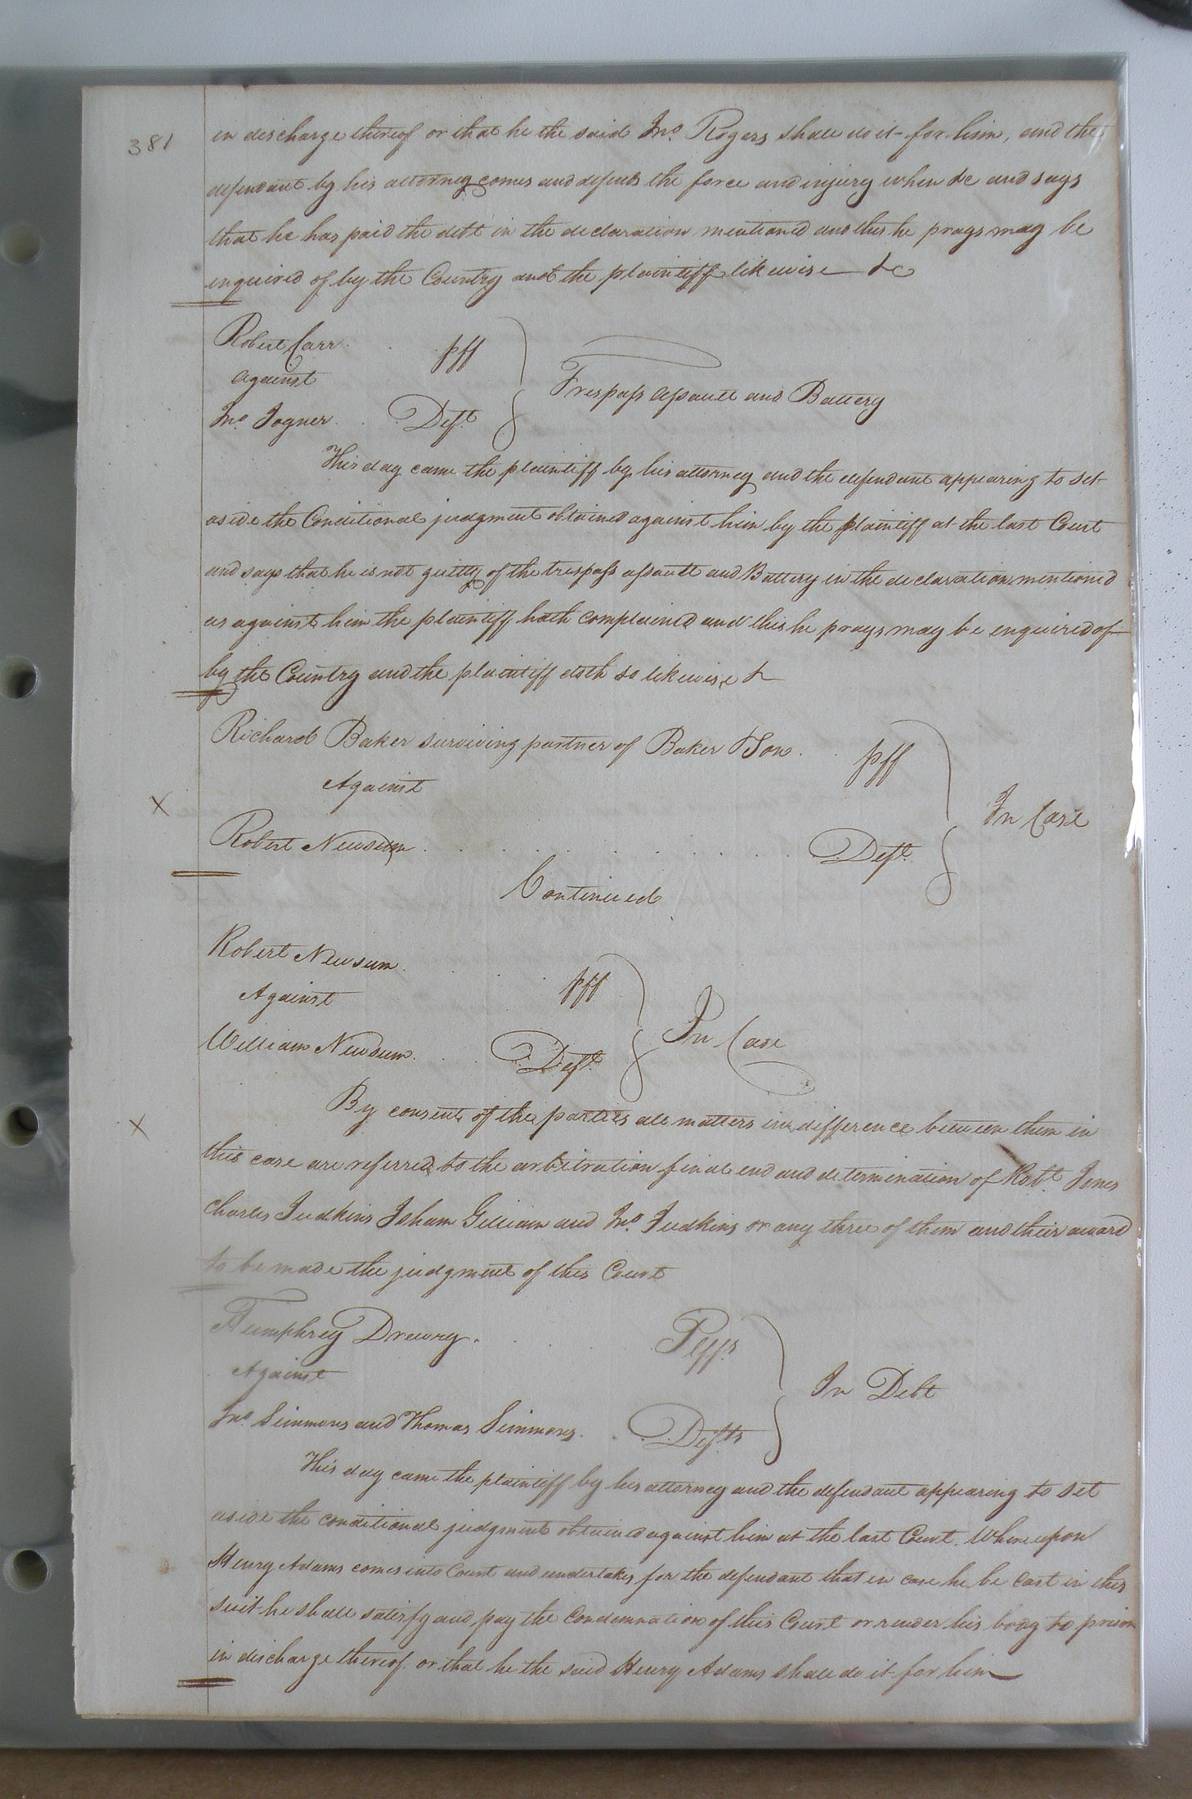 381
in discharge thereof or that he the said Jno. Rogers shall do it for him, and the
defendant by his attorney comes and defends the force and injury when &c and says
that he has paid the debt in the declaration mentioned and this he prays may be
enquired of by the Country and the plaintiff likewise &c
Robert Carr . . pff
against
Jno. Joyner . . Deft.
Trespass assault and Battery
This day came the plaintiff by his attorney and the defendant appearing to set
aside the Conditional judgment obtained against him by the plaintiff at the last Court
and says that he is not guilty of the trespass assault and Battery in the declaration mentioned
as against him the plaintiff hath complained and this he prays may be enquired of
by the Country and the plaintiff doth so likewise &
Richard Baker surviving partner of Baker & Son . pff
Against
In Case
X
Robert Newsum . . . . . . . . Deft.
Continued
Robert Newsum . . . pff
Against
William Newsum . . . Deft.
In Case
By consent of the parties all matters in difference between them in
X
this case are referred to the arbitration final end and determination of Robt. Jones
Charles Judkins Isham Gilliam and Jno. Judkins or any three of them and their award
to be made the judgment of this Court
Humphrey Drewry . . . Plffs
Against
In Debt
Jno. Simmons and Thomas Simmons . . Defts
This day came the plaintiff by his attorney and the defendant appearing to set
aside the conditional judgment obtained against him at the last Court. Whereupon
Henry Adams comes into Court and undertakes for the defendant that in case he be cast in this
suit he shall satisfy and pay the Condemnation of this Court or render his body to prison
in discharge thereof or that he the said Henry Adams shall do it for him